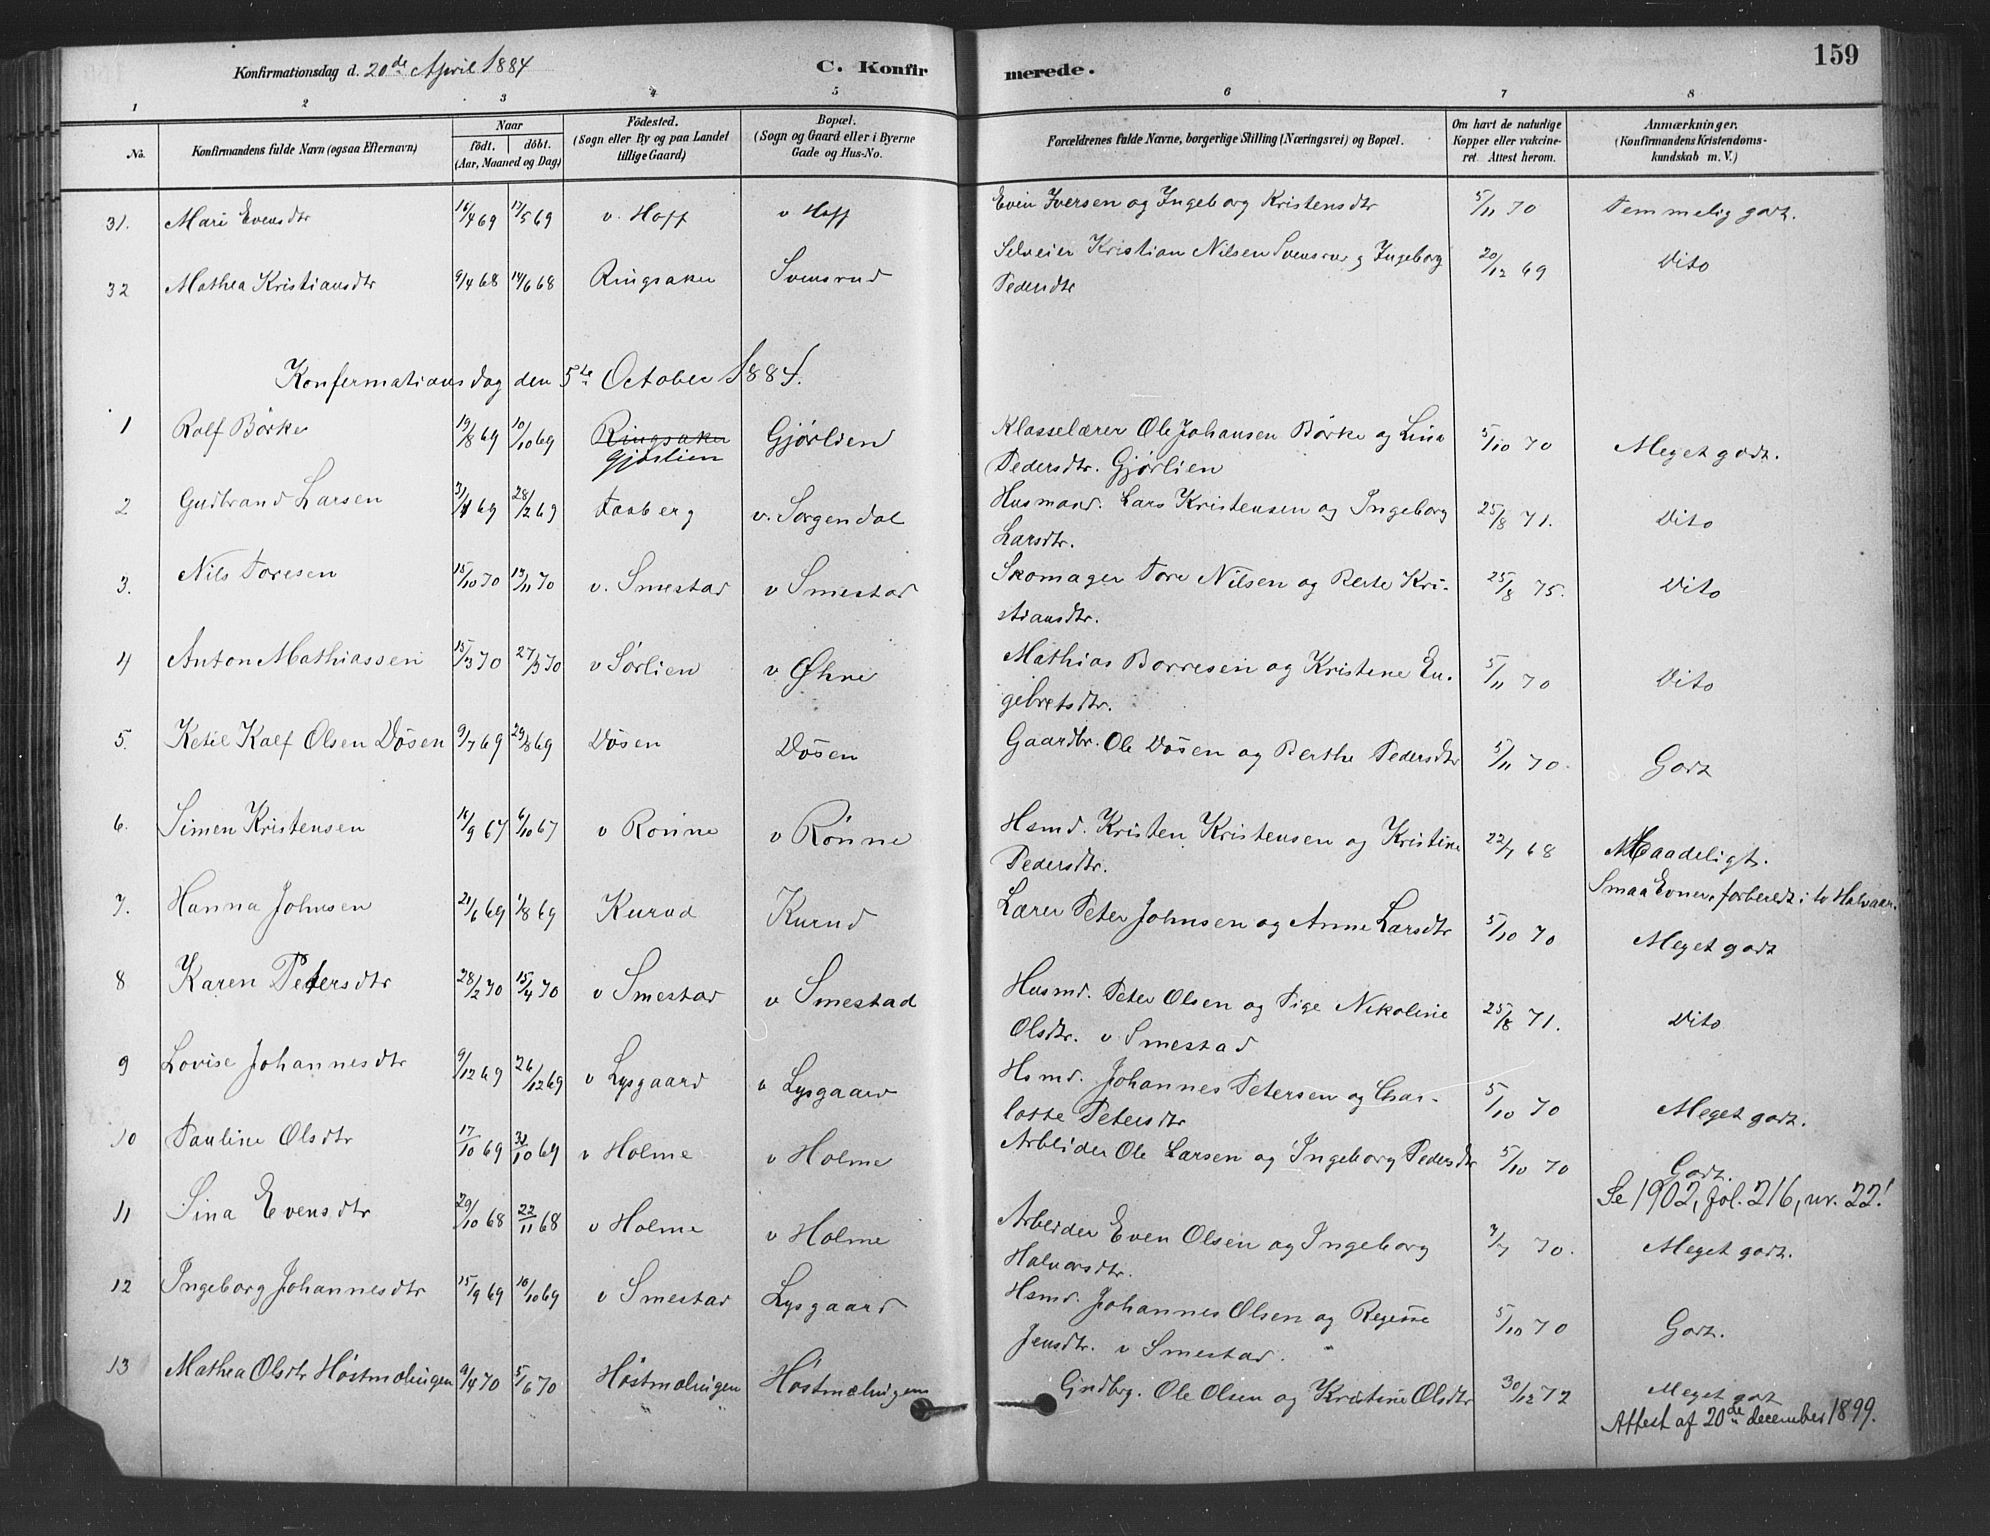 159
Konfirmationsdag d. 20de April 1884 C. Konfirmerede.
1 2 3 4 5 6 7 8
No. Konfirmandens fulde Navn (ogsaa Efternavn) Naar födt. döbt. (Aar, Maaned og Dag) Födested. (Sogn eller By og paa Landet tillige Gaard) Bopæl. (Sogn og Gaard eller i Byerne Gade og Hus-No. Forældrenes fulde Navne, borgerlige Stilling (Næringsvei) og Bopæl. Om havt de naturlige Kopper eller vakcineret Attest herom. Anmærkninger. (Konfirmandens Kristendomskundskab m. V.)
31. Mari Evensdtr 16/4 69 17/5 69 v. Hoff v Hoff Even Iversen og Ingeborg Kristensdtr 5/11 70 Temmelig godt.
32 Mathea Kristiansdtr 9/4 68 14/6 68 Ringsaker Svensrud Selveier Kristian Nilsen Svensrud og Ingeborg 20/12 69 Dito
Pedersdtr
Konfermationsdag den 5te October 1884.
1 Rolf Börke 19/8 69 10/10 69 Ringsaker Gjørlien Gjørlien Klasselærer Ole Johansen Börke og Lina 5/10 70 Meget godt.
Pedersdtr. Gjørlien
2 Gudbrand Larsen 31/1 69 28/2 69 Faaberg v. Sorgendal Husmand. Lars Kristensen og Ingeborg 25/8 71. Dito
Larsdtr.
3. Nils Toresen 15/10 70 13/11 70 v. Smestad v Smestad Skomager Tore Nilsen og Berte Kri- 25/8 75. Dito
stiansdtr.
4 Anton Mathiassen 15/3 70 27/3 70 v Sörlien v Øhne Mathias Borresen og Kristine En- 5/11 70 Dito
gebretsdtr.
5. Ketil Kalf Olsen Dösen 9/7 69 29/8 69 Dösen Dösen Gaardbr. Ole Dösen og Berthe Pedersdtr 5/11 70. Godt
6. Simen Kristensen 16/9 67 6/10 67 v Rönne v Rönne Hsmd. Kristen Kristensen og Kristine 22/7 68 Maadeligt.
Pedersdtr. Smaa Evner, forberedt i to Halvaar.
7. Hanna Johnsen 21/6 69 1/8 69 Kurud Kurud Lærer Peter Johnsen og Anne Larsdtr 5/10 70 Meget godt
8 Karen Petersdtr 28/2 70 15/4 70 v Smestad v Smestad Husmd. Peter Olsen og Pige Nikoline 25/8 71. Dito
Olsdtr. v Smestad
9 Lovise Johannesdtr 9/12 69 26/12 69 v Lysgaard v Lysgaard Hsmd. Johannes Petersen og Char- 5/10 70 Meget godt.
lotte Petersdtr
10 Pauline Olsdtr 17/10 69 31/10 69 v Holme v Holme Arbeider Ole Larsen og Ingeborg Pedersdtr 5/10 70 Godt.
Se 1902, fol. 216, nr. 22!
11 Sina Evensdtr 29/10 68 22/11 68 v Holme v Holme Arbeider Even Olsen og Ingeborg 7/7 70. Meget godt.
Halvorsdtr.
12 Ingeborg Johannesdtr 15/9 69 10/10 69 v Smestad Lysgaard Hsmd. Johannes Olsen og Regine 5/10 70 Godt.
Jensdtr. v Smestad.
13 Mathea Olsdtr Höstmælingen 9/4 70 5/6 70 Höstmælingen Höstmælingen Grdbrg. Ole Olsen og Kristine Olsdtr 30/12 72 Meget godt
Attest af 20de december 1899.